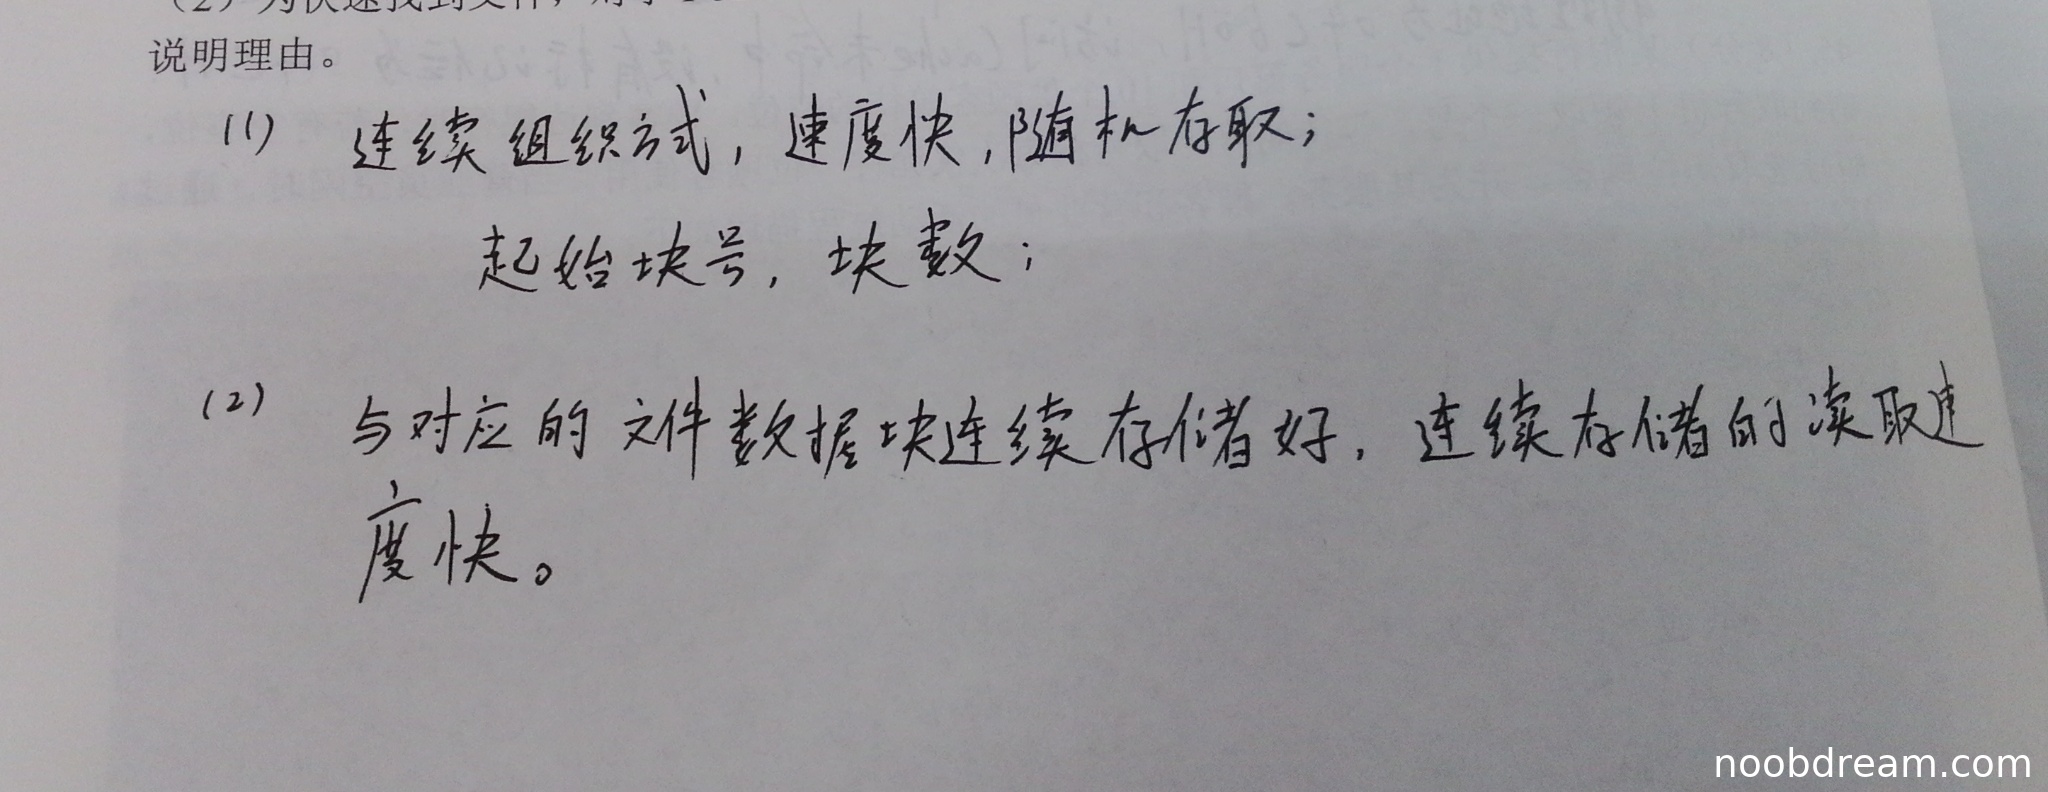 说明理由。
(1) 连续组织方式，速度快，随机存取；
起始块号，块数；
(2) 与对应的文件数据块连续存储好，连续存储的读取速
度快。
noobdream.com